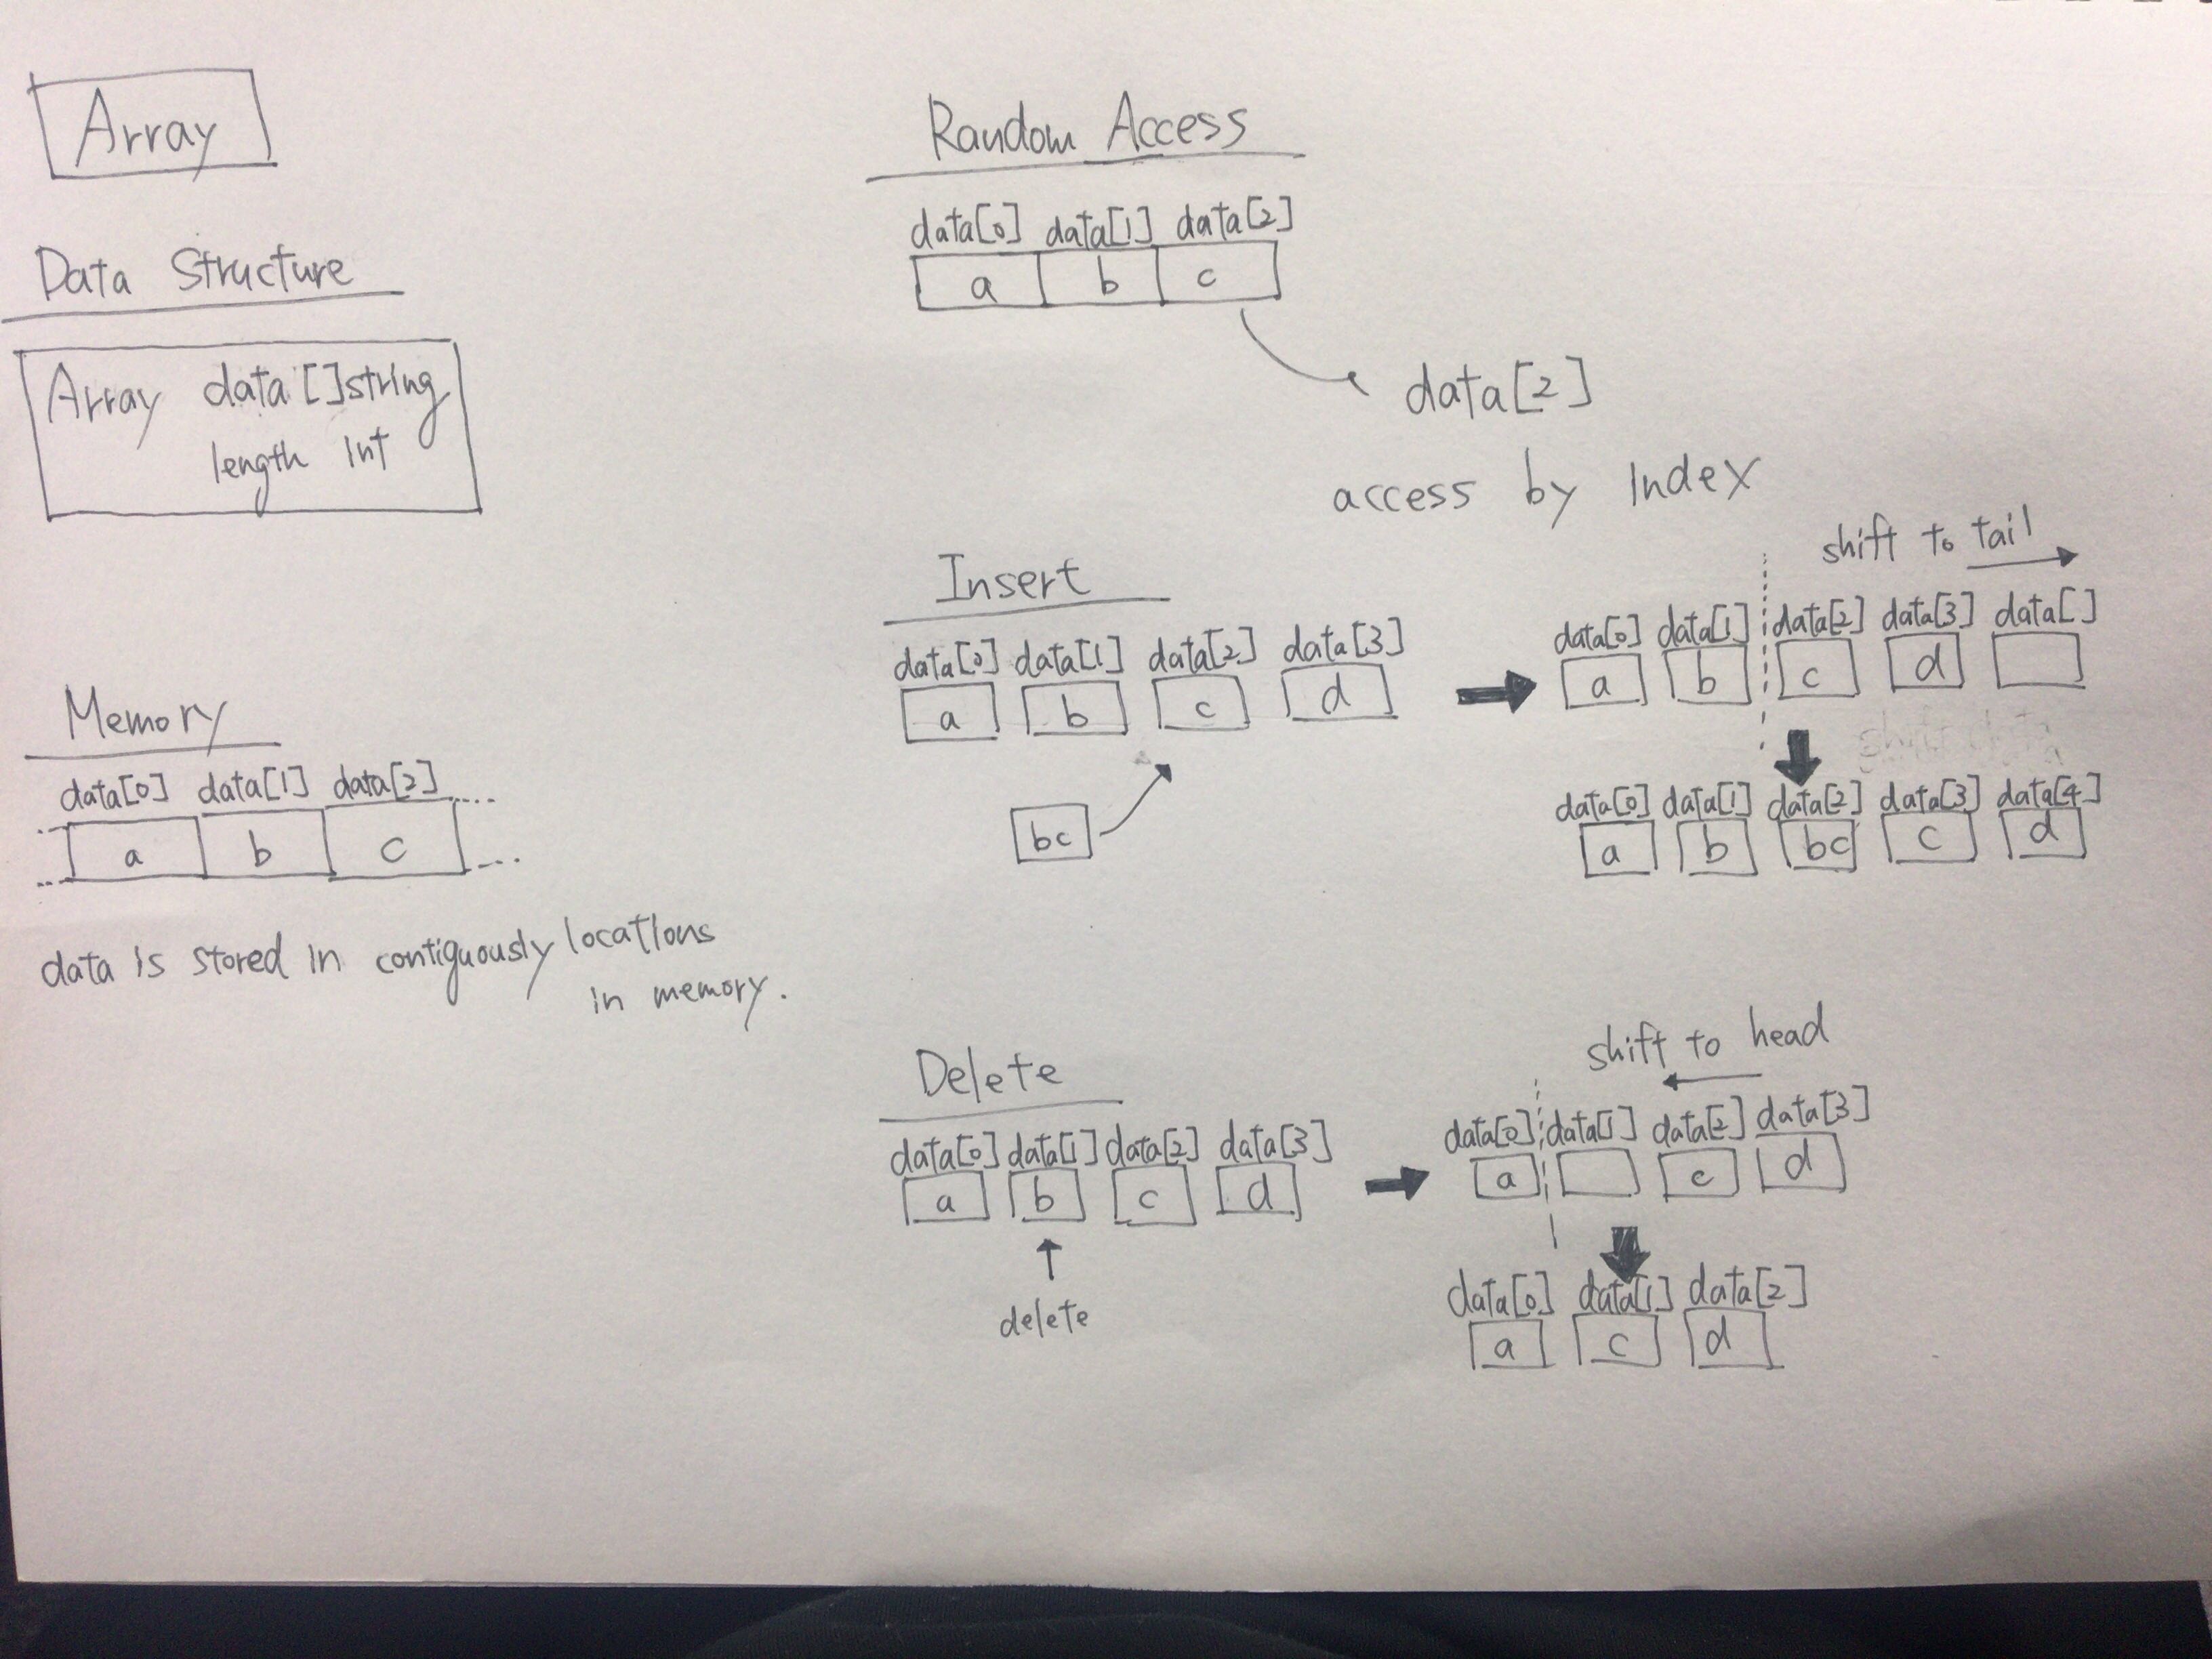 Array
Data Structure
Array data []string
length int
Memory
data[0] data[1] data[2]
a b c
data is stored in contiguously locations
in memory.
Random Access
data[0] data[1] data[2]
a b c
data[2]
access by index
Insert
data[0] data[1] data[2] data[3]
a b c d
bc
shift to tail
data[0] data[1] data[2] data[3] data[]
a b c d
data[0] data[1] data[2] data[3] data[4]
a b bc c d
Delete
data[0] data[1] data[2] data[3]
a b c d
delete
shift to head
data[0] data[1] data[2] data[3]
a c d
data[0] data[1] data[2]
a c d